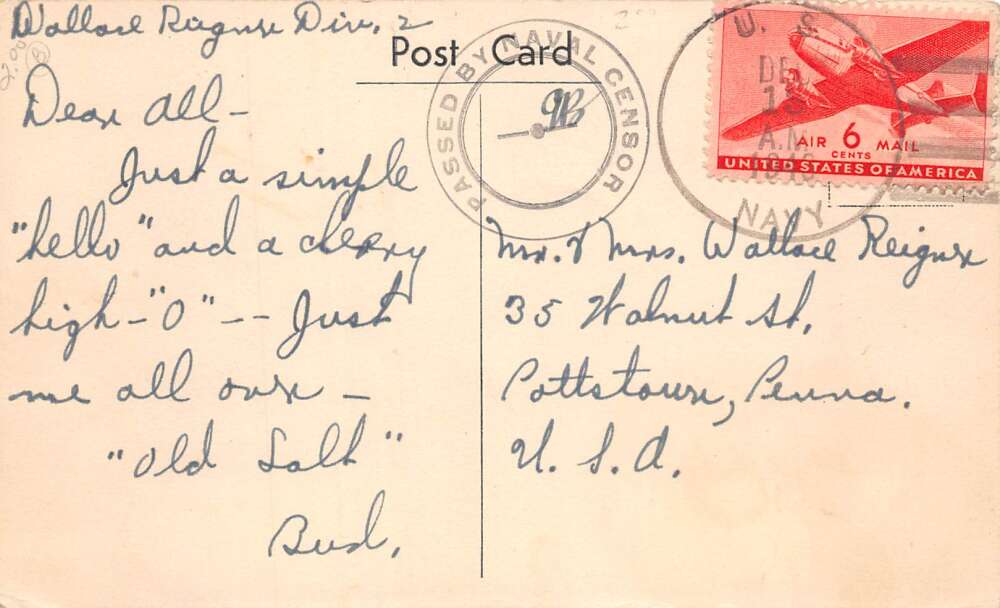 Wallace Reignr Div. 2
2.00
Post Card
PASSED BY NAVAL CENSOR
U. S.
DEC
13
A.M.
NAVY
AIR 6 MAIL
CENTS
UNITED STATES OF AMERICA
Dear All-
Just a simple
"hello" and a cheery
high-"O" -- Just
me all over -
"Old Salt"
Bud.
Mr. & Mrs. Wallace Reignr
35 Walnut St.
Pottstown, Penna.
U. S. A.